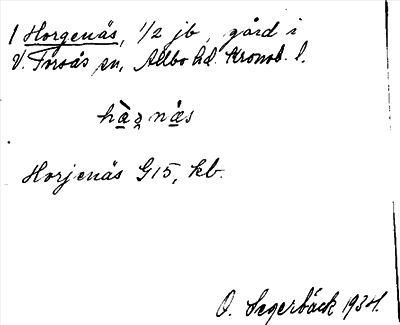 1 Horgenäs, 1/2 jb, gård i
V. Torsås sn, Allbo hd. Kronob. l.
hàʒnäs
Horjenäs G15, kb.
O. Segerbäck 1934.